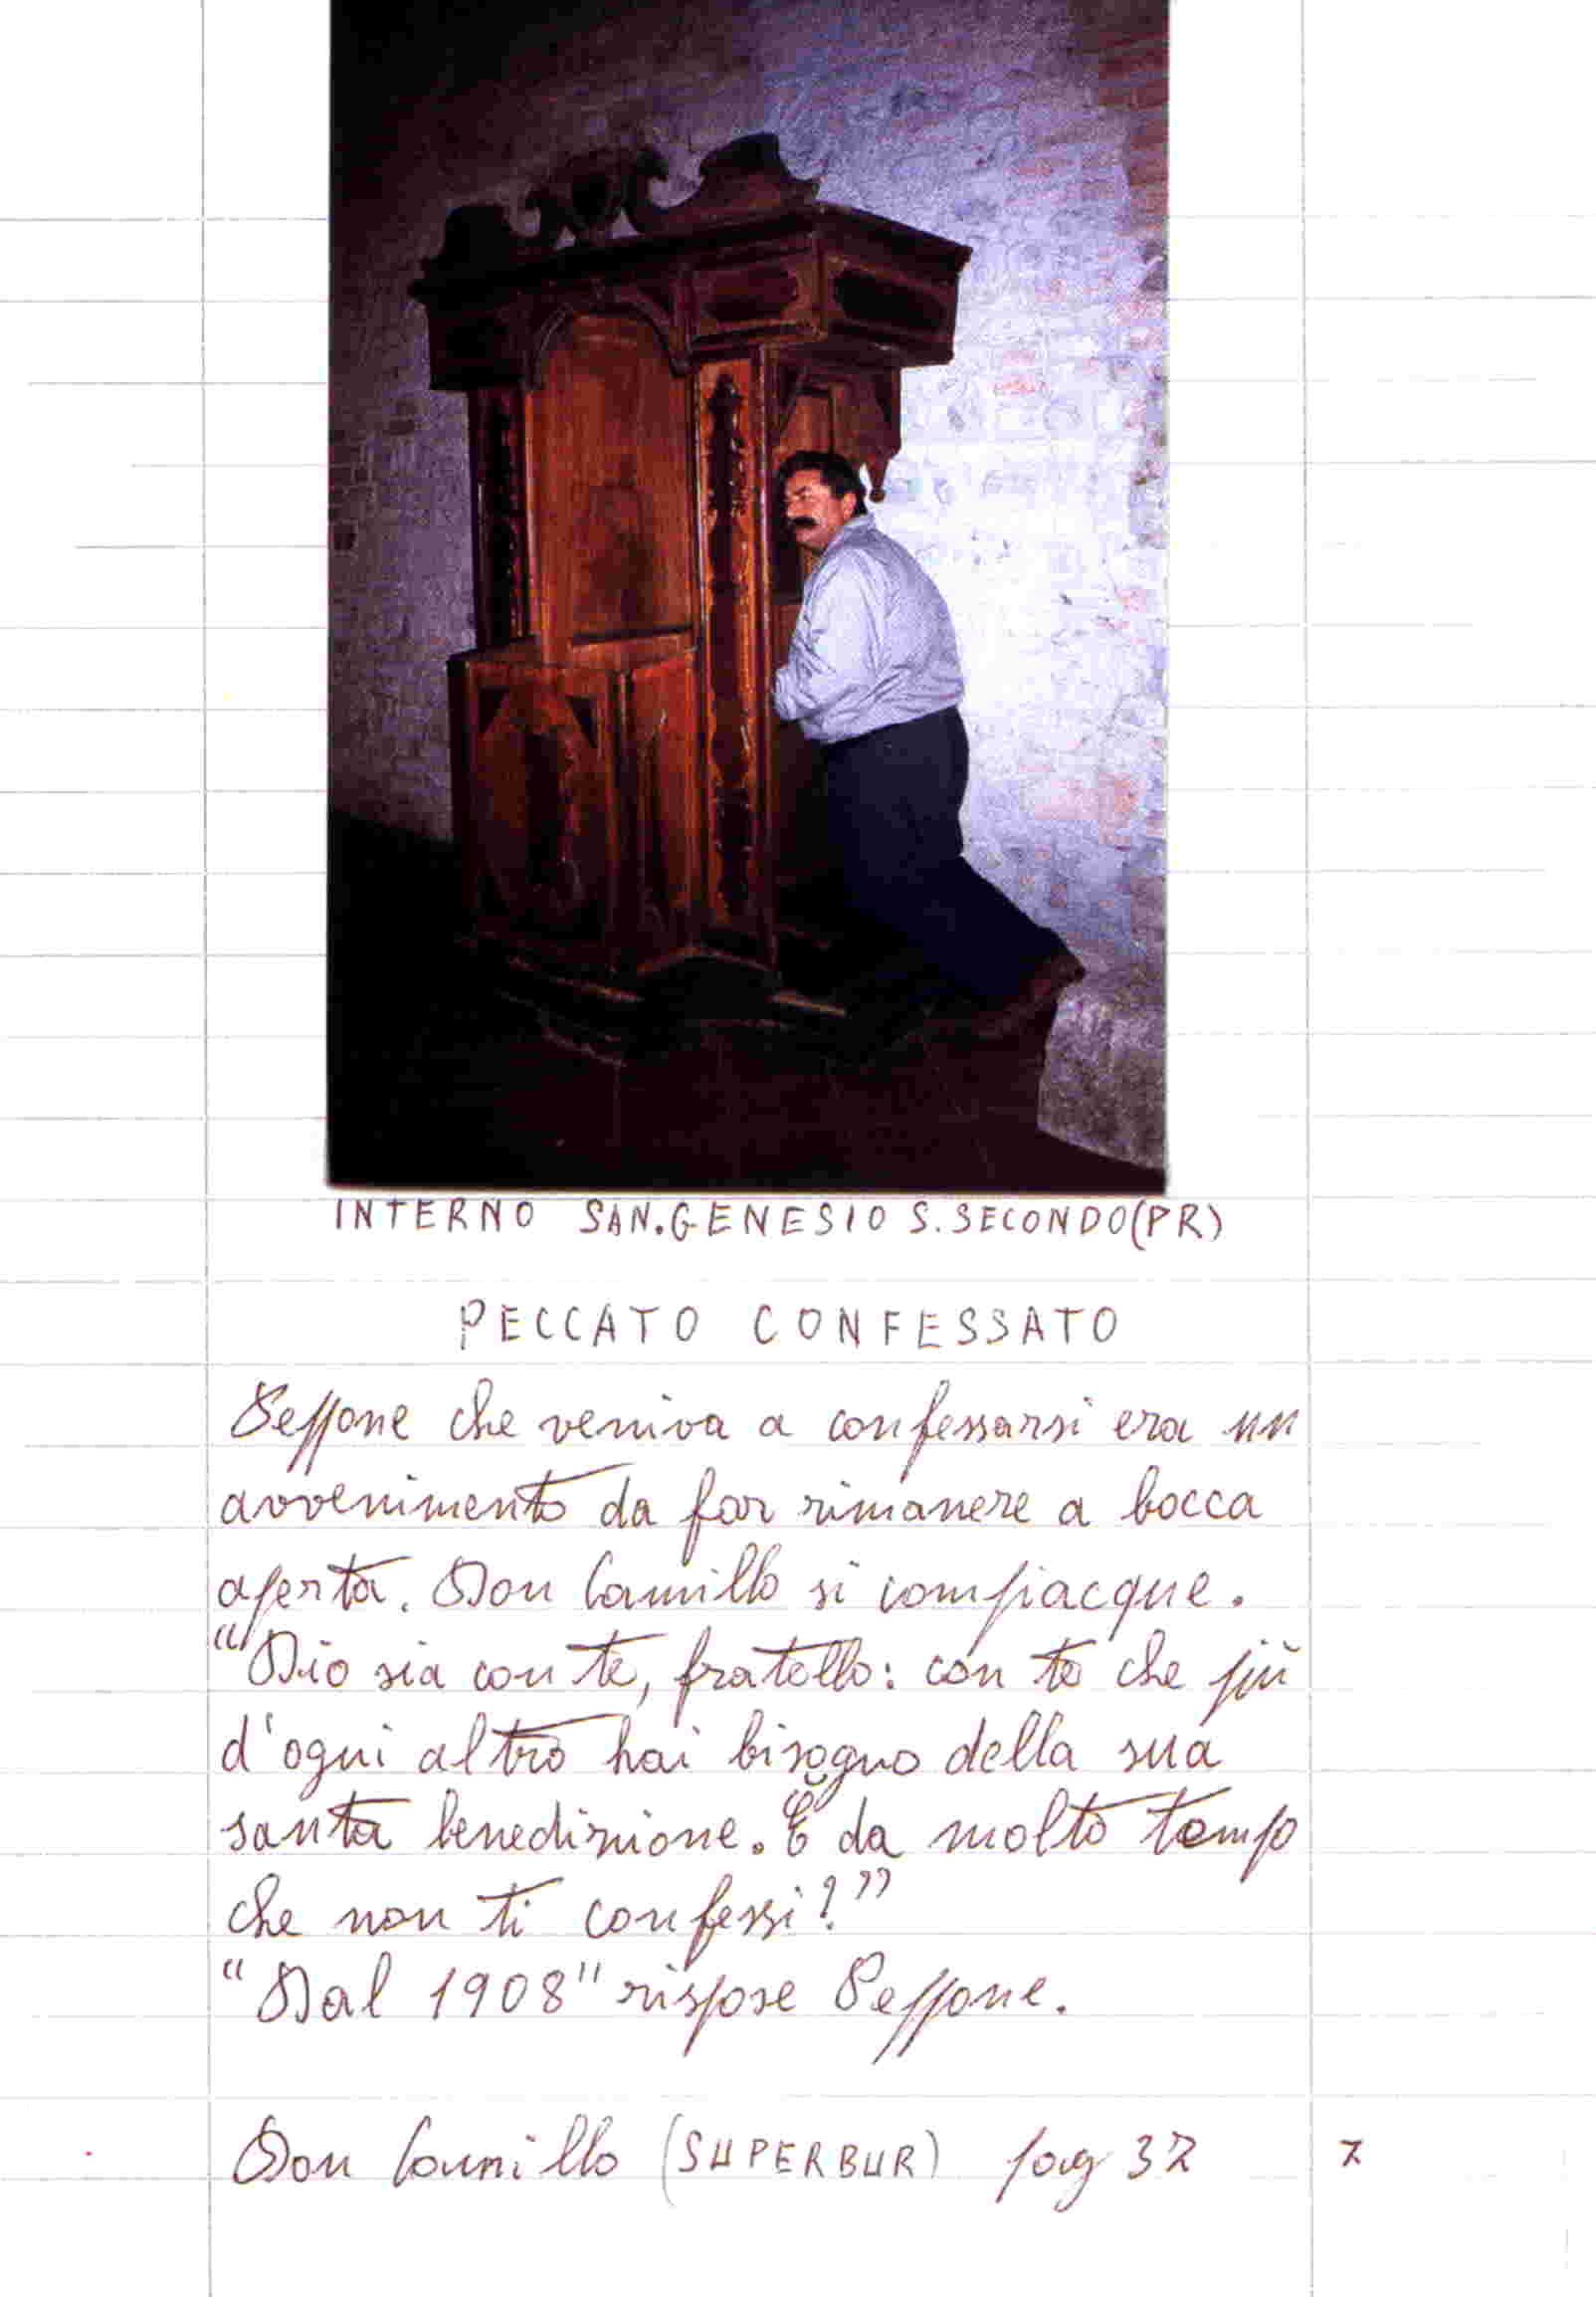 INTERNO SAN.GENESIO S.SECONDO(PR)
PECCATO CONFESSATO
Peppone che veniva a confessarsi era un
avvenimento da far rimanere a bocca
aperta. Don Camillo si compiacque.
"Dio sia con te, fratello: con te che più
d'ogni altro hai bisogno della sua
santa benedizione. È da molto tempo
che non ti confessi?"
"Dal 1908" rispose Peppone.
Don Camillo (SUPERBUR) pag 37
7